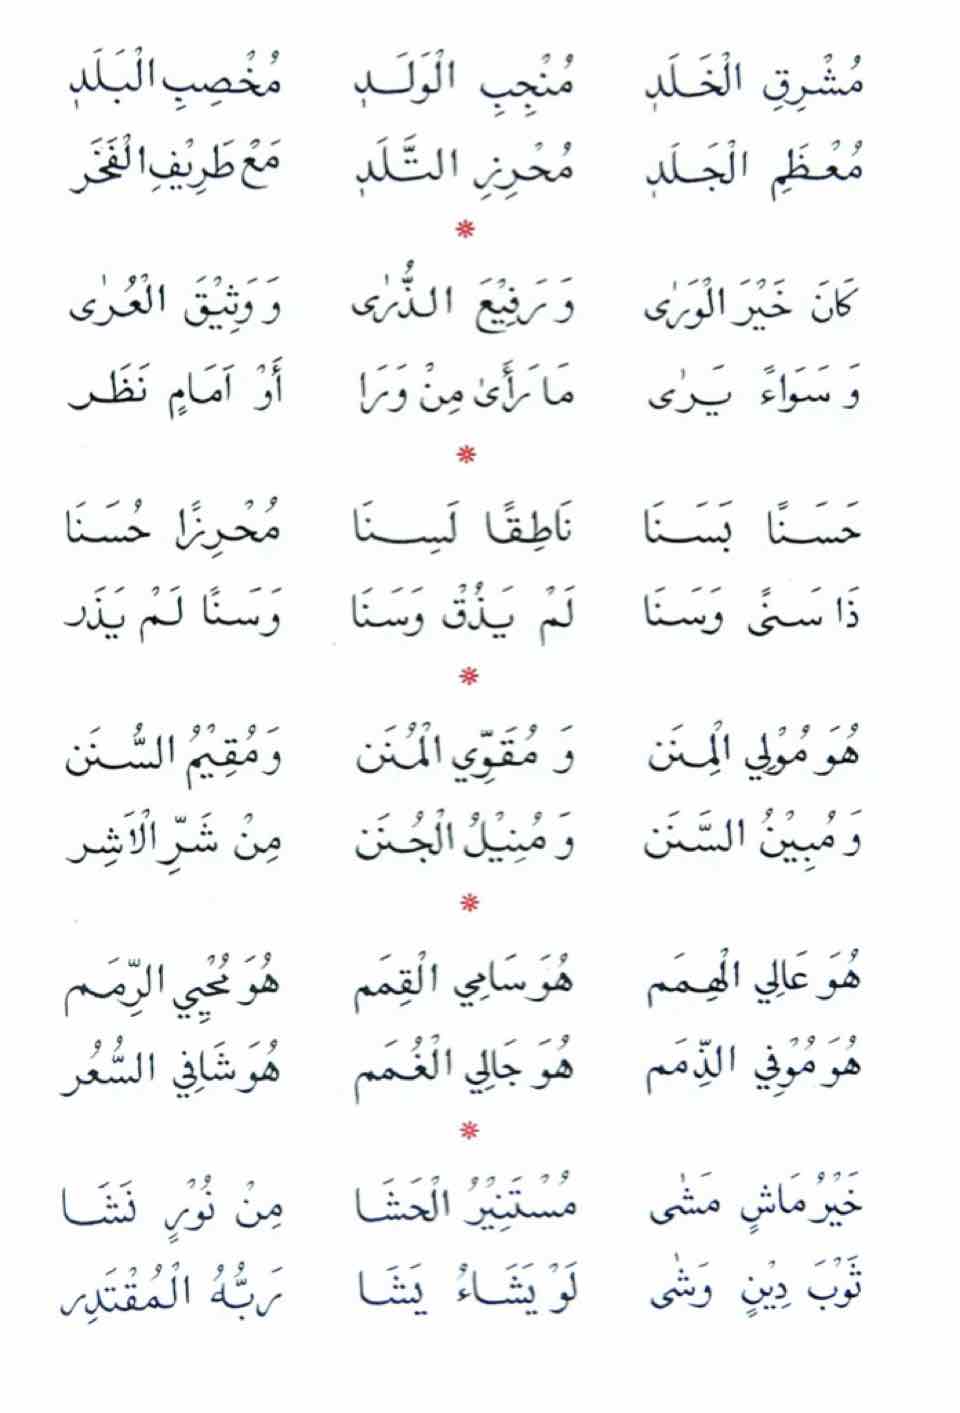 مُشْرِقِ الْخَلَدِ مُنْجِبِ الْوَلَدِ مُخْصِبِ الْبَلَدِ
مُعْظَمِ الْجَلَدِ مُحْرِزِ التَّلَدِ مَعْ طَرِيْفِ الْفَخَر
كَانَ خَيْرَ الْوَرٰى وَرَفِيْعَ الذُّرٰى وَوَثِيْقَ الْعُرٰى
وَسَوَاءً يَرٰى مَا رَأَىٰ مِنْ وَرَا أَوْ اَمَامٍ نَظَر
حَسَنًا بَسَنَا نَاطِقًا لَسِنَا مُحْرِزًا حُسَنَا
ذَا سَنًى وَسَنَا لَمْ يَذُقْ وَسَنَا وَسَنًا لَمْ يَذَر
هُوَ مُوْلِي الْمِنَن وَمُقَوِّي الْمُنَن وَمُقِيْمُ السُّنَن
وَمُبِيْنُ السَّنَن وَمُنِيْلُ الْجُنَن مِنْ شَرِّ الْاَشِر
هُوَ عَالِي الْهِمَم هُوَ سَامِي الْقِمَم هُوَ مُحْيِي الرِّمَم
هُوَ مُوْفِي الذِّمَم هُوَ جَالِي الْغُمَم هُوَ شَافِي السُّعُر
خَيْرُ مَاشٍ مَشٰى مُسْتَنِيْرُ الْحَشَا مِنْ نُوْرٍ نَشَا
ثَوْبَ دِيْنٍ وَشٰى لَوْ يَشَاءُ يَشَا رَبُّهُ الْمُقْتَدِر